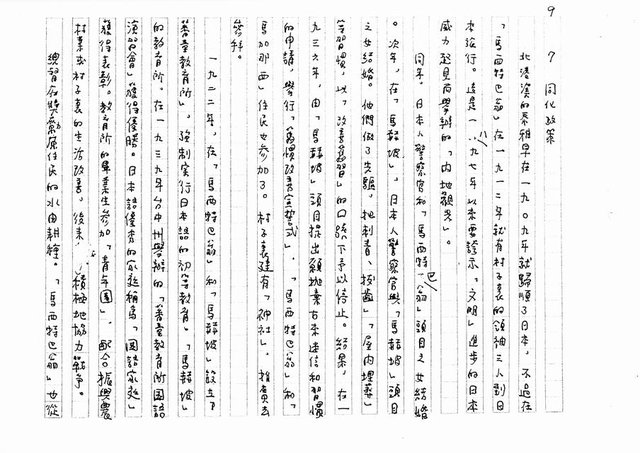 9
7 同化政策
北港溪的泰雅早在一九〇九年就歸順了日本，不過在
「馬西特巴翁」在一九一二年就有村子裏的領袖三人到日
本旅行。這是一八九七年以來要誇示「文明」進步的日本
威力起見而舉辦的「內地觀光」。
同年，日本人警察官和「馬西特巴翁」頭目之女結婚
。次年，在「馬赫坡」，日本人警察官與「馬赫坡」頭目
之女結婚。他們做了先驅，把刺青、拔齒」「屋內埋葬」
等習慣，以「改善舊習」的口號下予以停止。結果，在一
九三六年，由「馬赫坡」頭目提出願拋棄古來迷信和習慣
的申請，舉行「舊慣改善宣誓式」，「馬西特巴翁」和「
馬加那西」住民也參加了。村子裏建有「神社」，推責去
參拜。
一九二二年，在「馬西特巴翁」和「馬赫坡」設立了
「蕃童教育所」，強制實行日本語的初等教育。「馬赫坡」
的教育所。在一九三九年台中州舉辦的「蕃童教育所國語
演習會」獲得優勝。日本語優秀的家庭稱為「國語家庭」
獲得表彰。教育所的畢業生參加「青年團」，配合振興農
村業或村子裏的生活改善，後來，積極地協力戰爭。
總督府獎勵原住民的水田耕種。「馬西特巴翁」也從